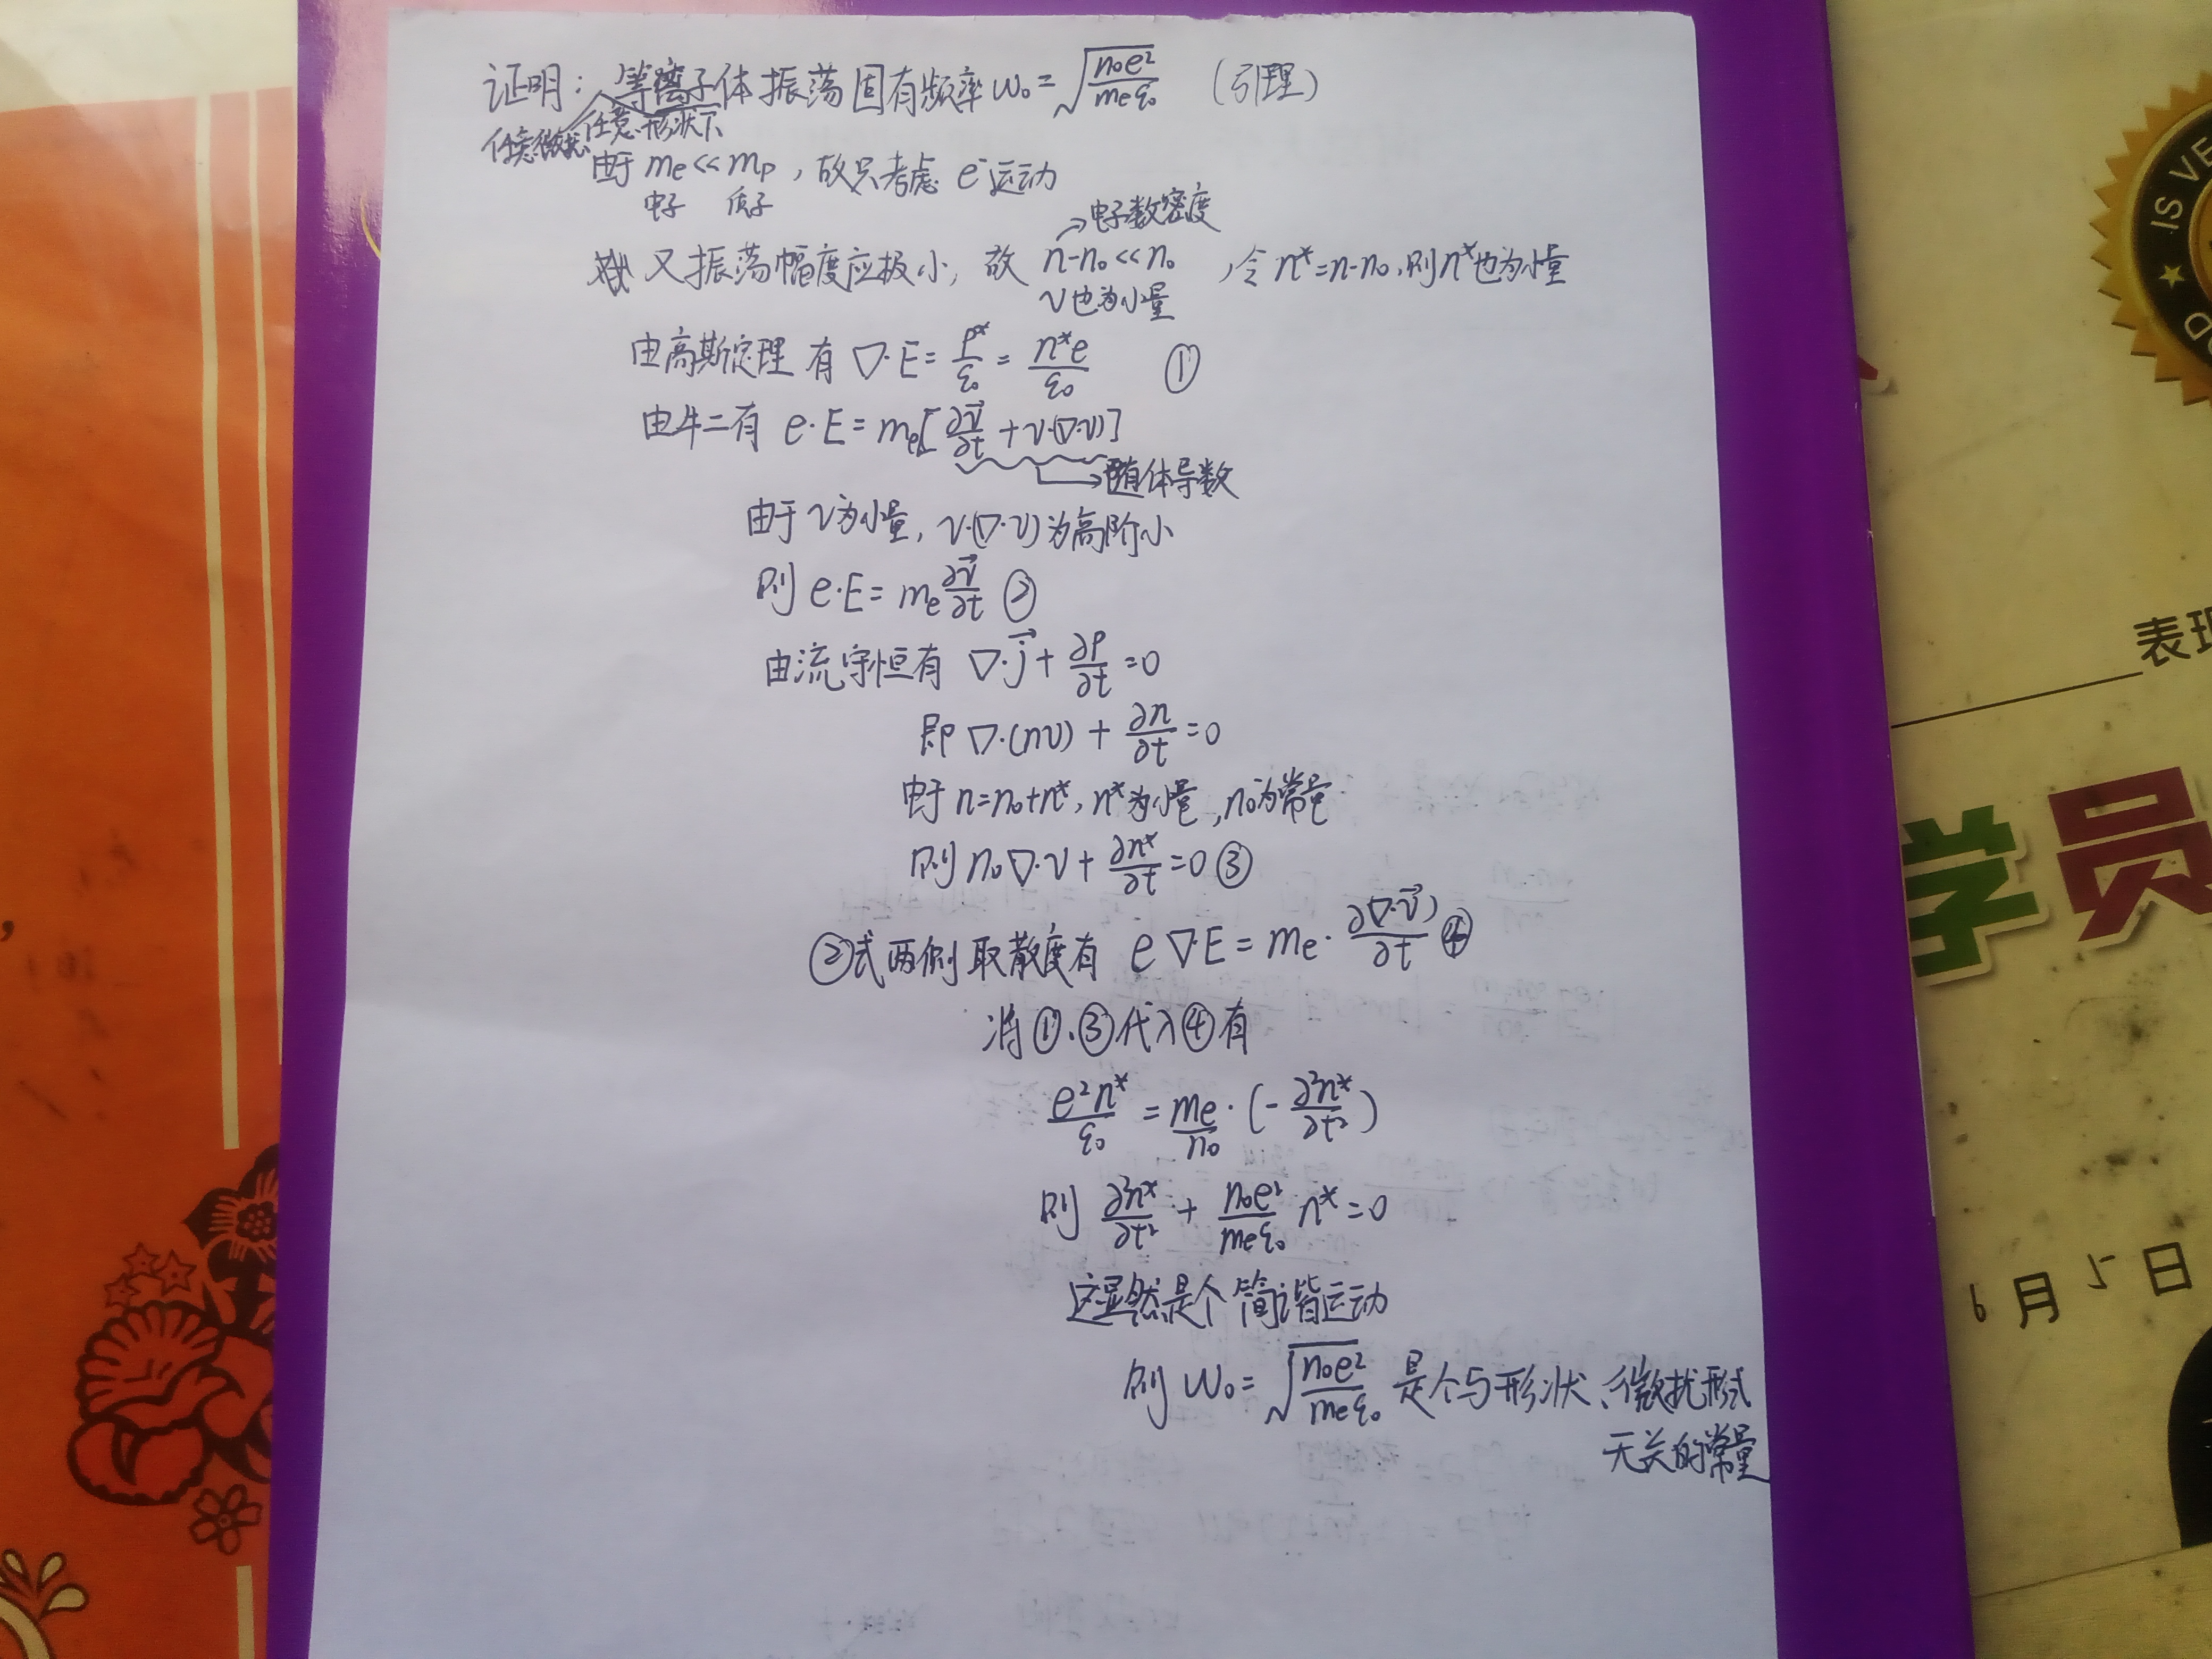 证明：等离子体振荡固有频率 ω₀=√(n₀e²/(mₑε₀)) （引理）
任意微扰 任意形状下
由于 mₑ<<mₚ，故只考虑 e⁻运动
电子 质子
→电子数密度
又振荡幅度应极小，故 n-n₀<<n₀，令 n*=n-n₀，则n*也为小量
v也为小量
由高斯定理有 ∇·E=ρ*/ε₀=n*e/ε₀ ①
由牛二有 e·E=mₑ[∂v⃗/∂t+v·(∇·v)]
→随体导数
由于v为小量，v·(∇·v)为高阶小
则 e·E=mₑ∂v⃗/∂t ②
由流守恒有 ∇·j⃗+∂ρ/∂t=0
即 ∇·(nv)+∂n/∂t=0
由于 n=n₀+n*，n*为小量，n₀为常量
则 n₀∇·v+∂n*/∂t=0 ③
②式两侧取散度有 e∇·E=mₑ·∂(∇·v⃗)/∂t ④
将①、③代入④有
e²n*/ε₀=mₑ/n₀·(-∂²n*/∂t²)
则 ∂²n*/∂t²+(n₀e²/(mₑε₀))n*=0
这显然是个简谐运动
则 ω₀=√(n₀e²/(mₑε₀)) 是个与形状、微扰形式
无关的常量
IS VE
表现
学员
6月5日